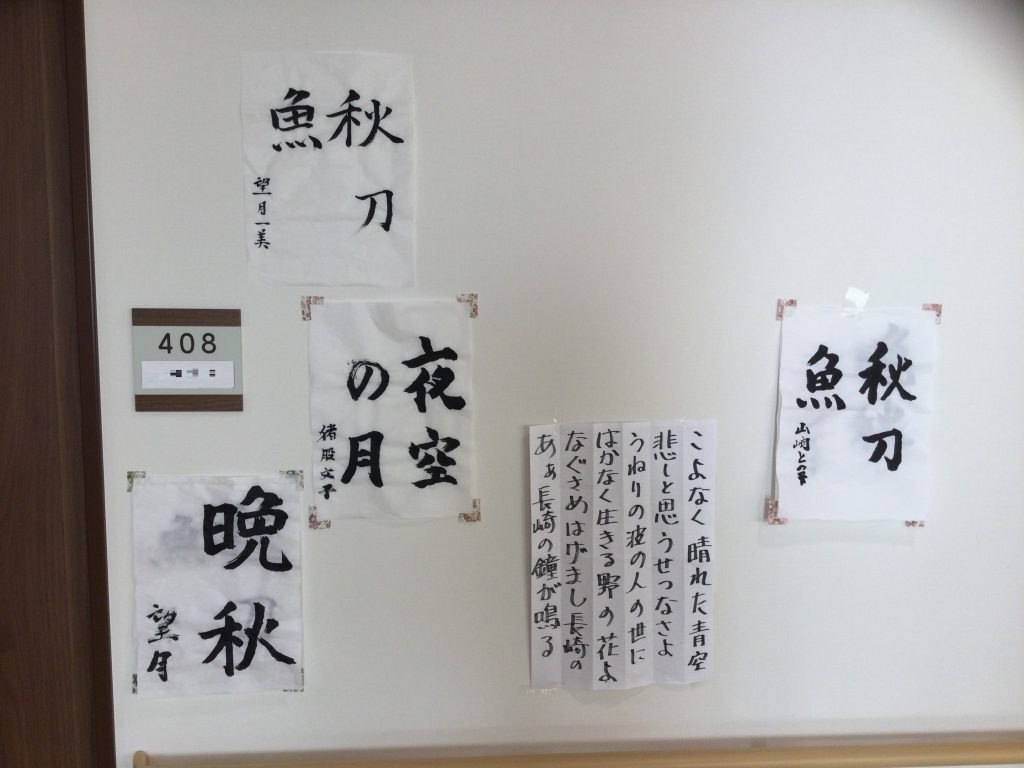 秋刀
魚
望月一美
408
夜空
の月
猪股文子
晩秋
望月
こよなく晴れた青空
悲しと思うせつなさよ
うねりの波の人の世に
はかなく生きる野の花よ
なぐさめはげまし長崎の
あぁ長崎の鐘が鳴る
秋刀
魚